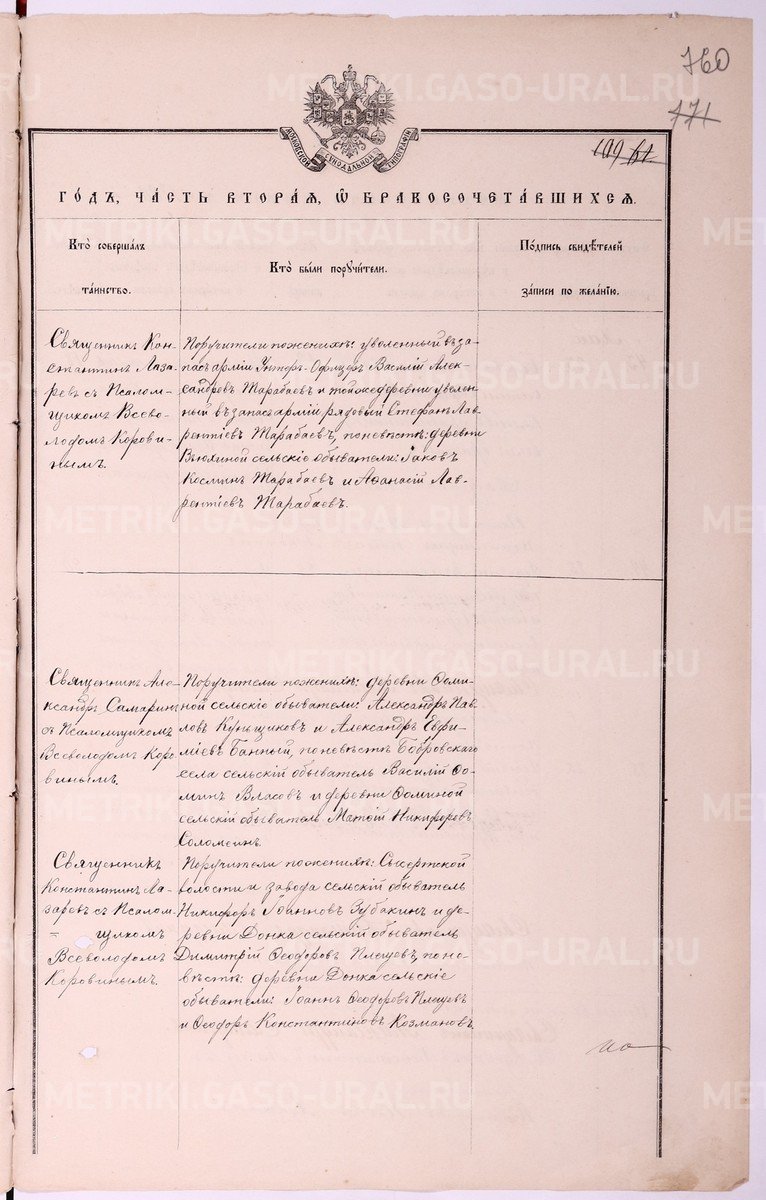 760
171
109 61.
МОСКОВСКОЙ СѴНОДАЛЬНОЙ ТИПОГРАФІИ
ГО́ДЪ, ЧА́СТЬ ВТОРА́Я, Ѡ҆ БРАКОСОЧЕТА́ВШИХСЯ.
Кто̀ соверша́лъ
та́инство.
Кто̀ бы́ли порꙋчи́тели.
По́дпись свидѣ́телей
за́писи по жела́нїю.
Священникъ Кон-
стантинъ Лаза-
ревъ съ Псалом-
щикомъ Всево-
лодомъ Корови-
нымъ.
Поручители по женихѣ: уволенный въ за-
пасъ арміи Унтеръ-Офицеръ Василій Алек-
сандровъ Тарабаевъ и той же деревни уволен-
ный въ запасъ арміи рядовый Стефанъ Лав-
рентіевъ Тарабаевъ, по невѣстѣ: деревни
Вьюхиной сельскіе обыватели: Іаковъ
Космин Тарабаевъ и Аѳанасій Лав-
рентіевъ Тарабаевъ.
Священникъ Але-
ксандръ Самаринъ
съ Псаломщикомъ
Всеволодомъ Коро-
винымъ.
Поручители по женихѣ: деревни Ѳоми-
ной сельскіе обыватели: Александръ Пав-
ловъ Куньщиковъ и Александръ Евфи-
міевъ Банный, по невѣстѣ Бобровскаго
села сельскій обыватель Василій Ѳо-
минъ Власовъ и деревни Ѳоминой
сельскій обыватель Матѳій Никифоровъ
Соломеинъ.
Священникъ
Константинъ Ла-
заревъ съ Псалом-
щикомъ
Всеволодомъ
Коровинымъ.
Поручители по женихѣ: Сысертской
волости и завода сельскій обыватель
Никифоръ Іоанновъ Зубакинъ и де-
ревни Донка сельскій обыватель
Димитрій Ѳеодоровъ Плещевъ, по не-
вѣстѣ: деревни Донка сельскіе
обыватели: Іоаннъ Ѳеодоровъ Плещевъ
и Ѳеодоръ Константиновъ Козмановъ.
METRIKI.GASO-URAL.RU